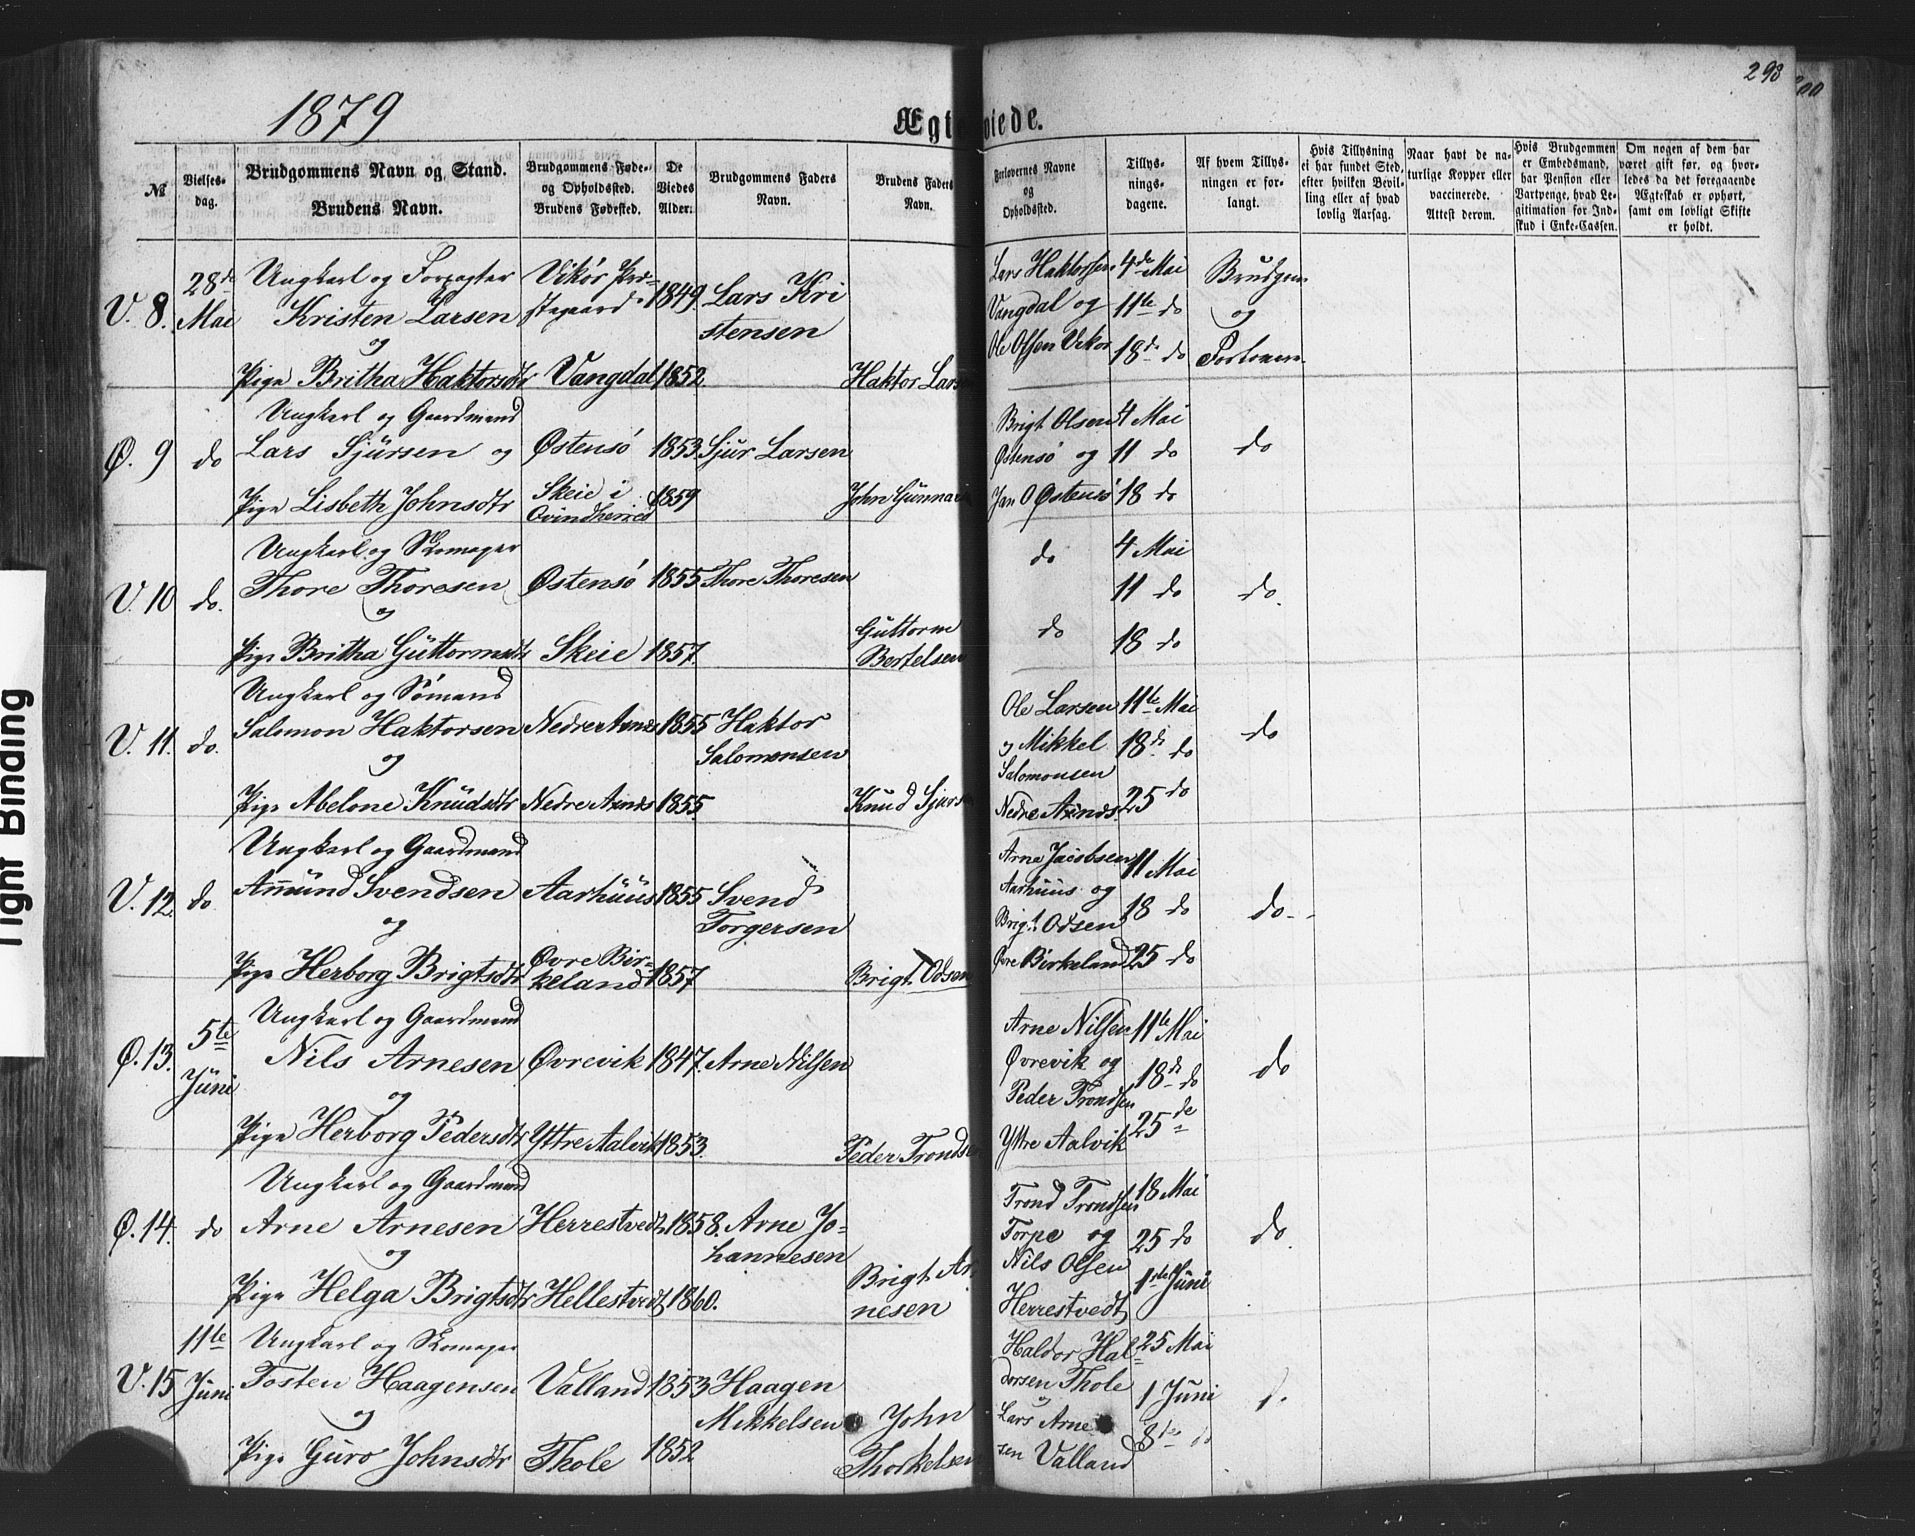 1879
Ægt
viede.
298
200
№
Vielses-
dag.
Brudgommens Navn og Stand.
Brudens Navn.
Brudgommens Føde-
og Opholdssted.
Brudens Fødested.
De
Viedes
Alder.
Brudgommens Faders
Navn.
Brudens Faders
Navn.
Forlovernes Navne
og
Opholdssted.
Tillys-
nings-
dagene.
Af hvem Tillys-
ningen er for-
langt.
Hvis Tillysning
ei har fundet Sted,
efter hvilken Bevil-
ling eller af hvad
lovlig Aarsag.
Naar havt de na-
turlige Kopper eller
vaccinerede.
Attest derom.
Hvis Brudgommen
er Embedsmand,
har Pension eller
Vartpenge, hvad Le-
gitimation for Ind-
skud i Enke-Cassen.
Om nogen af dem har
været gift før, og hvor-
ledes da det foregaaende
Ægteskab er ophørt,
samt om lovligt Skifte
er holdt.
V. 8.
28de
Mai
Ungkarl og Forpagter
Kristen Larsen
og
Pige Britha Haktorsdtr
Vikör Præ-
stegaard
Vangdal
1849
1852
Lars Kri
stensen
Haktor Lars
Lars Haktorssen
Vangdal og
Ole Olsen Vikör
4de Mai
11te do
18de do
Brudgom
og
Forlovere
Ø. 9
do
Ungkarl og Gaardmand
Lars Sjursen og
Pige Lisbeth Johnsdtr
Östensö
Skeie i
Qvindherred
1853
1859
Sjur Larsen
John Gunnar
Brigt Olsen
Östensö og
Jan O Östensö
4 Mai
11 do
18 do
do
V. 10
do.
Ungkarl og Skomager
Thore Thoresen
og
Pige Britha Guttormsdtr
Östensö
Skeie
1855
1857
Thore Thoresen
Guttorm
Bertelsen
do
do
4 Mai
11 do
18 do
do.
V. 11.
do.
Ungkarl og Sömand
Salomon Haktorsen
og
Pige Abelone Knudsdtr
Nedre Axnæs
Nedre Axnæs
1855
1855
Haktor
Salomonsen
Knud Sjurs
Ole Larsen
og Mikkel
Salomonsen
Nedre Axnæs
11te Mai
18de do
25 do
do
V. 12
do
Ungkarl og Gaardmand
Amund Svendsen
og
Pige Herborg Brigtsdtr
Aarhuus
Övre Bir-
keland
1855
1857
Svend
Torgersen
Brigt Odsen
Arne Jacobsen
Aarhuus og
Brigt Odsen
Övre Birkeland
11 Mai
18 do
25 do
do
Ø. 13.
5te
Juni
Ungkarl og Gaardmand
Nils Arnesen
og
Pige Herborg Pedersdtr
Övrevik
Yttre Aalvik
1847.
1853.
Arne Nilsen
Peder Trondse
Arne Nilsen
Övrevik og
Peder Trondsen
Yttre Aalvik
11te Mai
18de do
25de
do
Ø. 14.
do
Ungkarl og Gaardmand
Arne Arnesen
og
Pige Helga Brigtsdtr
Herrestvedt
Hellestvedt
1858.
1860.
Arne Jo-
hannesen
Brigt Ar
nesen
Trond Trondsen
Torpe og
Nils Olsen
Herrestvedt
18 Mai
25 do
1ste Juni
do.
V. 15
11te
Juni
Ungkarl og Skomager
Tosten Haagensen
og
Pige Guro Johnsdtr
Valland
Thole
1853
1852
Haagen
Mikkelsen
John
Thorkelsen
Haldor Hal-
dorsen Thole
og
Lars Arne
sen Valland
25 Mai
1 Juni
8de do
Tight Binding